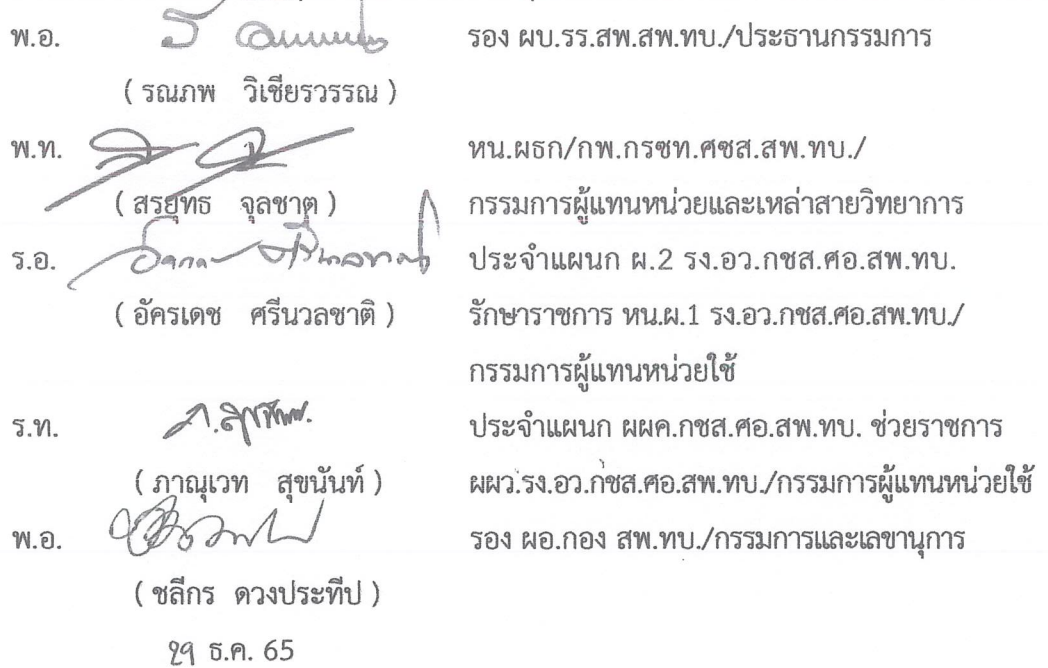 พ.อ. รอง ผบ.รร.สพ.สพ.ทบ./ประธานกรรมการ
( รณภพ วิเชียรวรรณ )
พ.ท. หน.ผธก/กพ.กรซท.ศซส.สพ.ทบ./
( สรยุทธ จุลชาต ) กรรมการผู้แทนหน่วยและเหล่าสายวิทยาการ
ร.อ. ประจำแผนก ผ.2 รง.อว.กซส.ศอ.สพ.ทบ.
( อัครเดช ศรีนวลชาติ ) รักษาราชการ หน.ผ.1 รง.อว.กซส.ศอ.สพ.ทบ./
กรรมการผู้แทนหน่วยใช้
ร.ท. ประจำแผนก ผผค.กซส.ศอ.สพ.ทบ. ช่วยราชการ
( ภาณุเวท สุขนันท์ ) ผผว.รง.อว.กซส.ศอ.สพ.ทบ./กรรมการผู้แทนหน่วยใช้
พ.อ. รอง ผอ.กอง สพ.ทบ./กรรมการและเลขานุการ
( ชลีกร ดวงประทีป )
๒๑ ธ.ค. 65